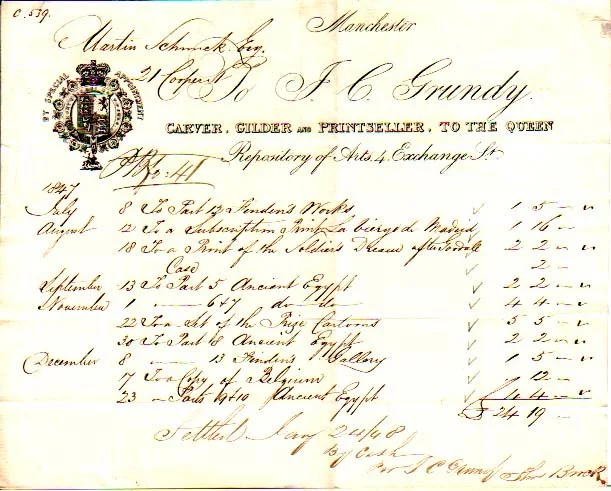 C. 539.
Manchester
Martin Schunck Esq.
21 Cooper St
To J. C. Grundy.
BY SPECIAL APPOINTMENT
CARVER, GILDER AND PRINTSELLER, TO THE QUEEN
Repository of Arts, 4, Exchange St.
No: 41
1847
July 8 To Part 12 Finden's Works 1 5 -
August 12 To a Subscription Print La Vierge de Madrid 1 16 -
18 To a Print of the Soldier's Dream after Goodall 2 2 -
Case 2 -
September 13 To Part 5 Ancient Egypt 2 2 -
November 1 - 6 & 7 do - do 4 4 -
22 To a Set of the Prize Cartoons 5 5 -
30 To Part 8 Ancient Egypt 2 2 -
December 8 - 13 Finden's Gallery 1 5 -
17 To a Copy of Belgium 12 -
23 - Parts 9 & 10 Ancient Egypt 4 4 -
£ 24 19 -
Settled Jany 24/48
By Cash
Per J C Grundy